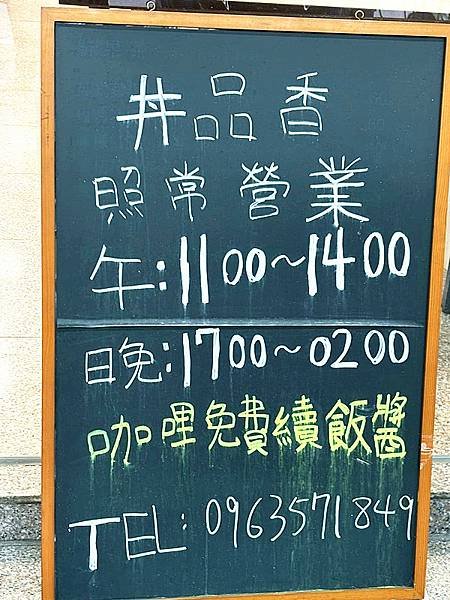 丼品香
照常營業
午:1100~1400
晚:1700~0200
咖哩免費續飯醬
TEL:0963571849